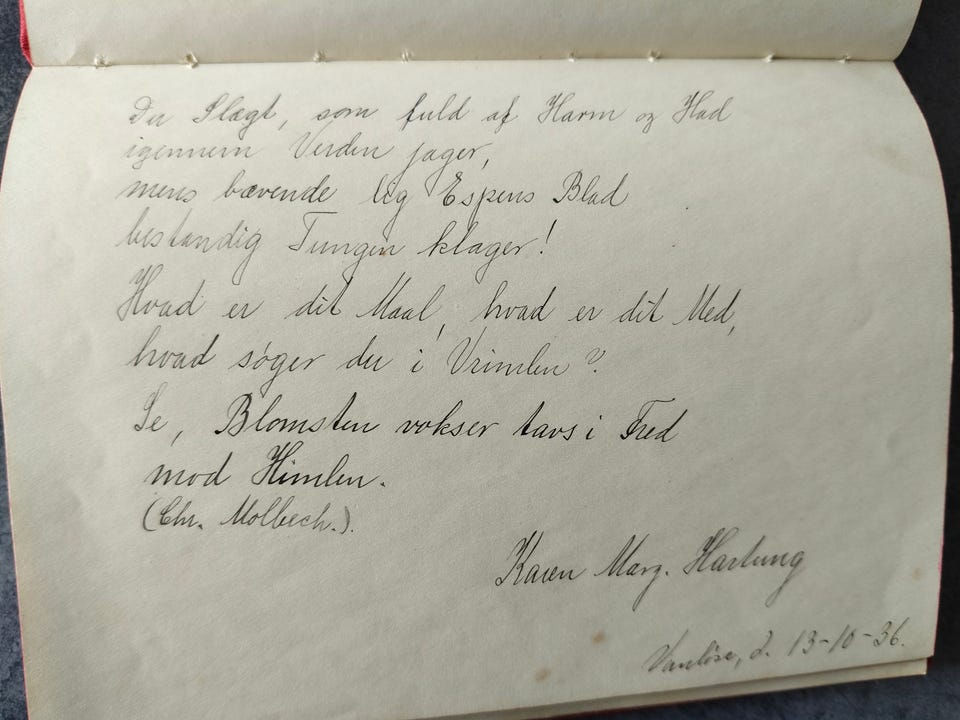 Du Slægt, som fuld af Harm og Had
igennem Verden jager,
mens bævende lig Espens Blad
bestandig Tungen klager!
Hvad er dit Maal, hvad er dit Med,
hvad søger du i Vrimlen?
Se, Blomsten vokser tavs i Fred
mod Himlen.
(Chr. Molbech.).
Karen Marg. Hartung
Vanløse, d. 13-10-36.